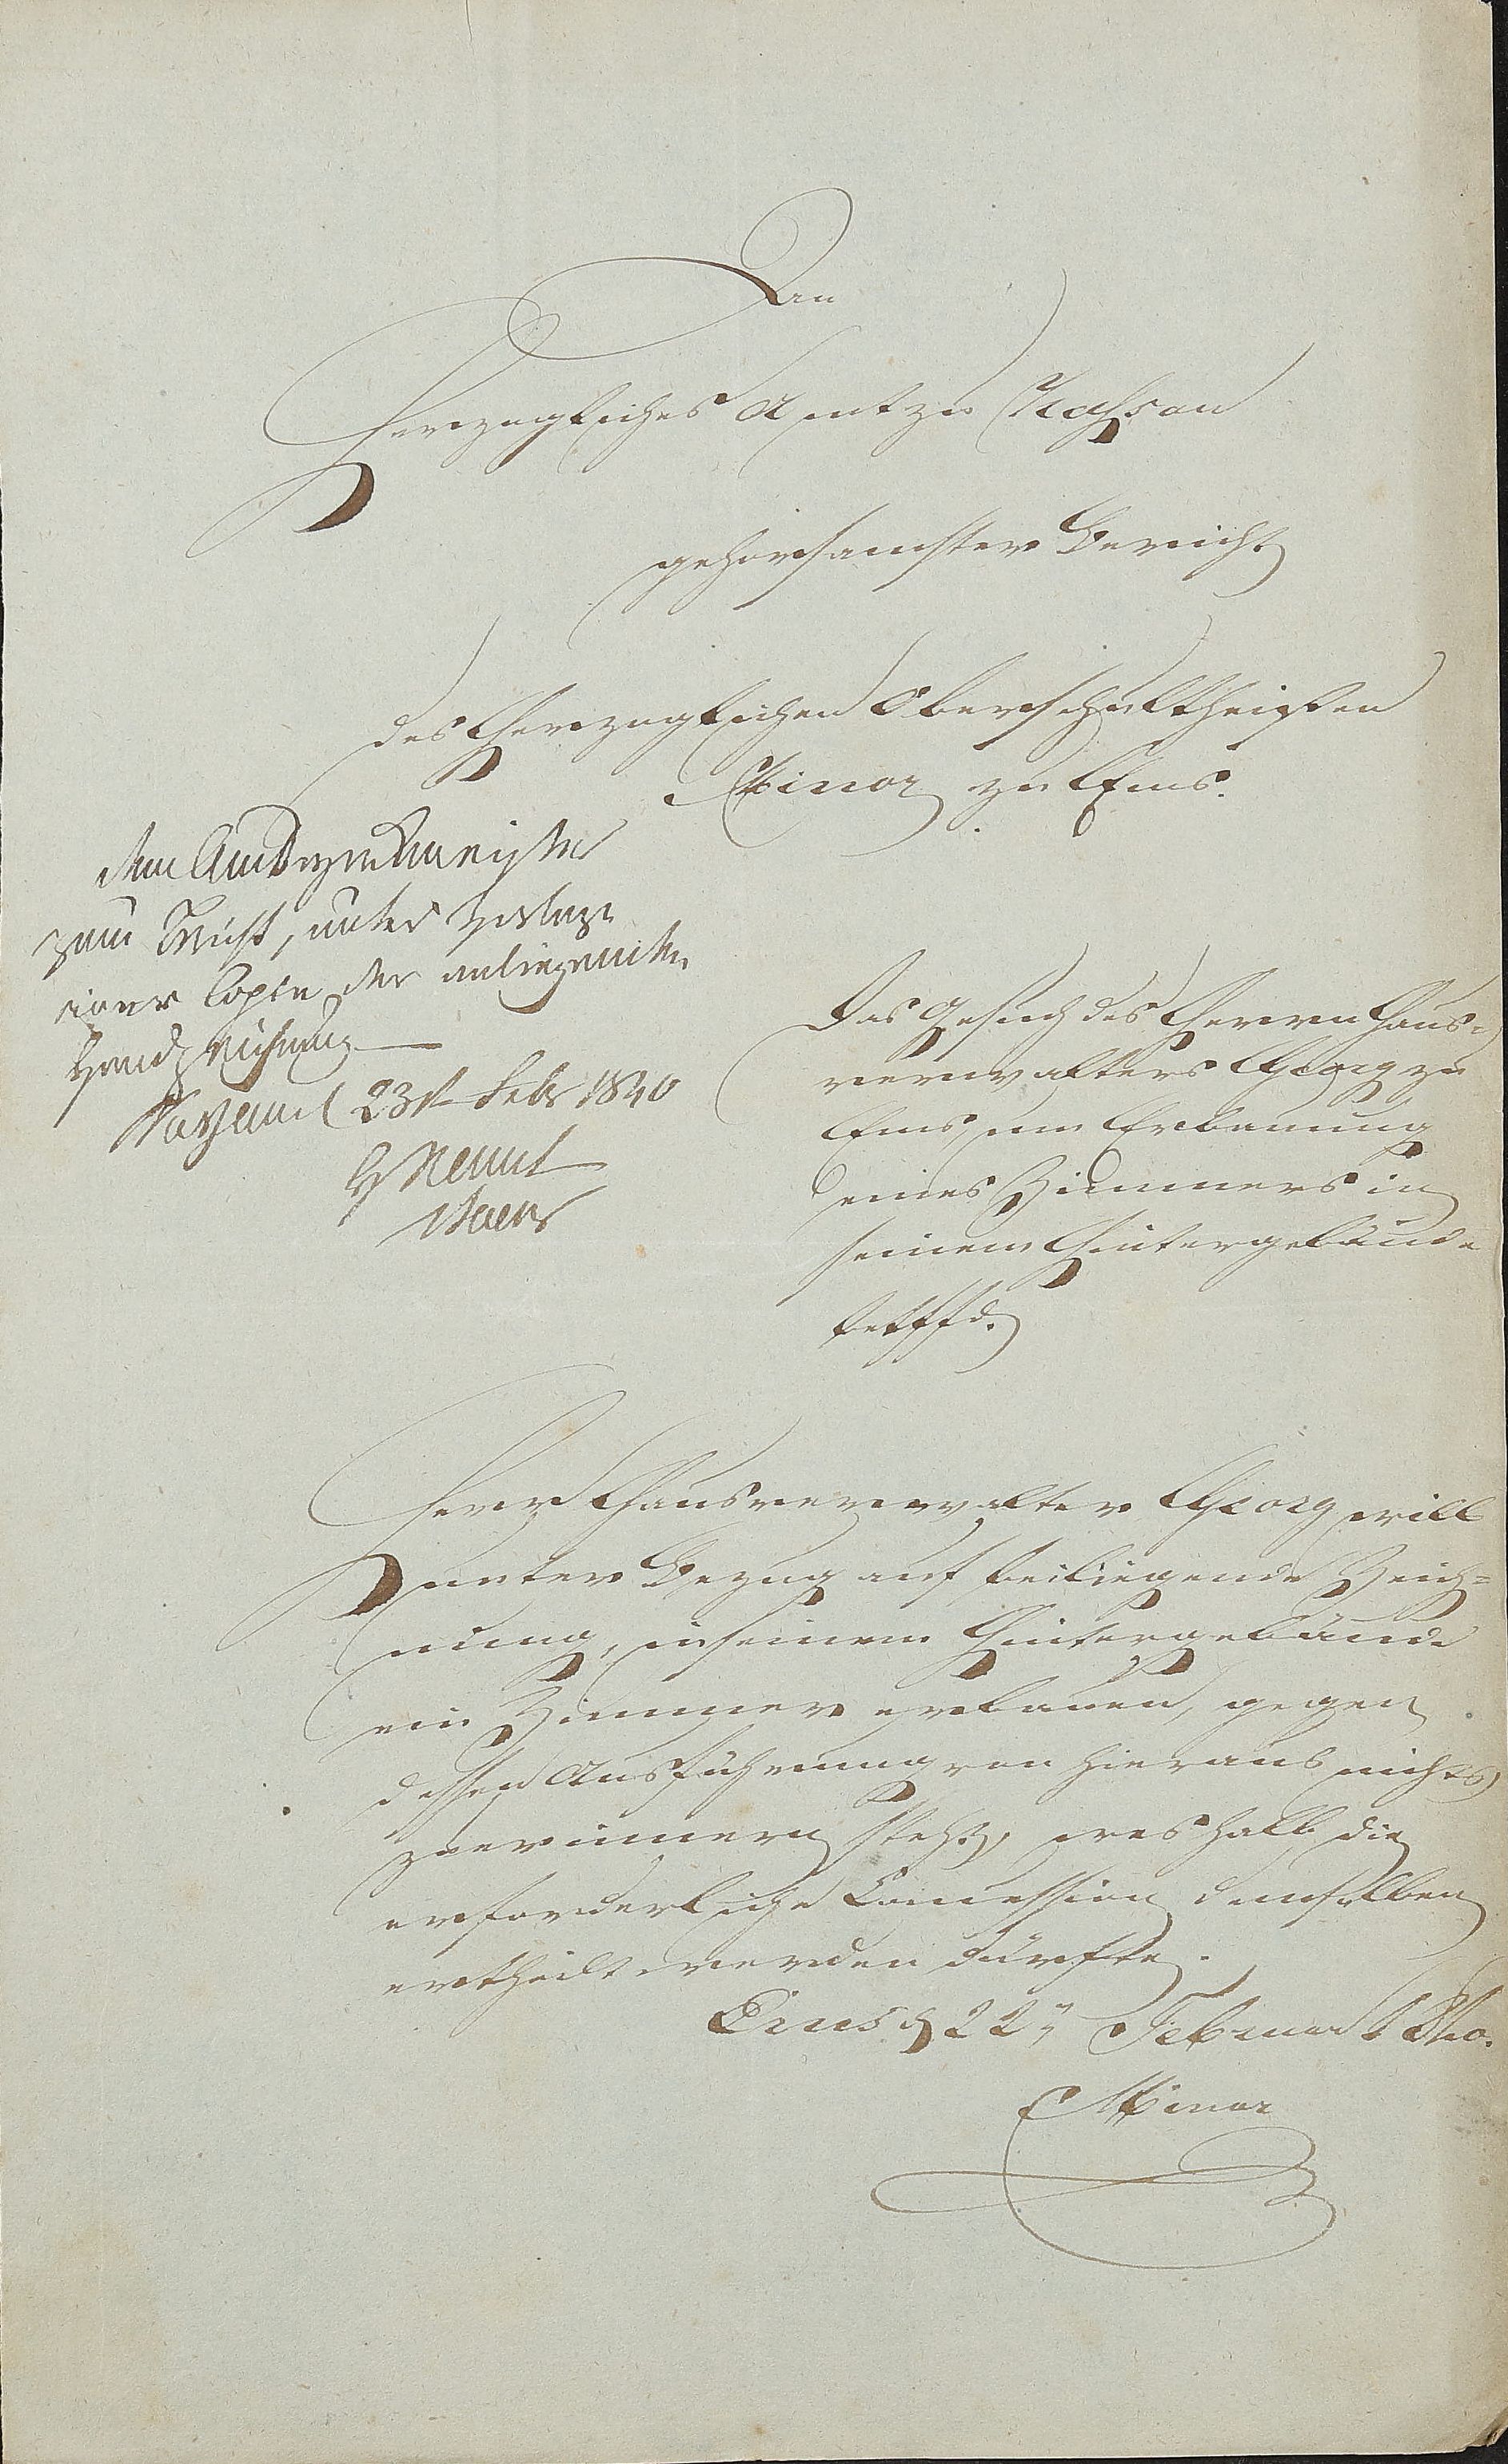 An
Herzogliches Amt zu Nassau
gehorsamster Bericht
des Herzoglichen Oberschultheißen
Minor zu Ems.
dem Amtswerkmeister
zum Bericht, unter Vorlage
einer Copie der anliegenden
Handzeichnung
Nassau 23t Febr 1840
H Namt
Das Gesuch des Herrn Haus=
verwalters Georg zu
Ems, um Erbauung
eines Zimmers in
seinem Hintergebäude
betffd.
Herr Hausverwalter Georg will
unter Bezug auf beiliegende Zeich=
nung, in seinem Hintergebäude
ein Zimmer erbauen, gegen
dessen Ausführung von hieraus nichts
zu erinnern steht, weshalb die
erforderliche Concession demselben
ertheilt werden dürfte.
Ems d 22n Februar 1840.
Minor